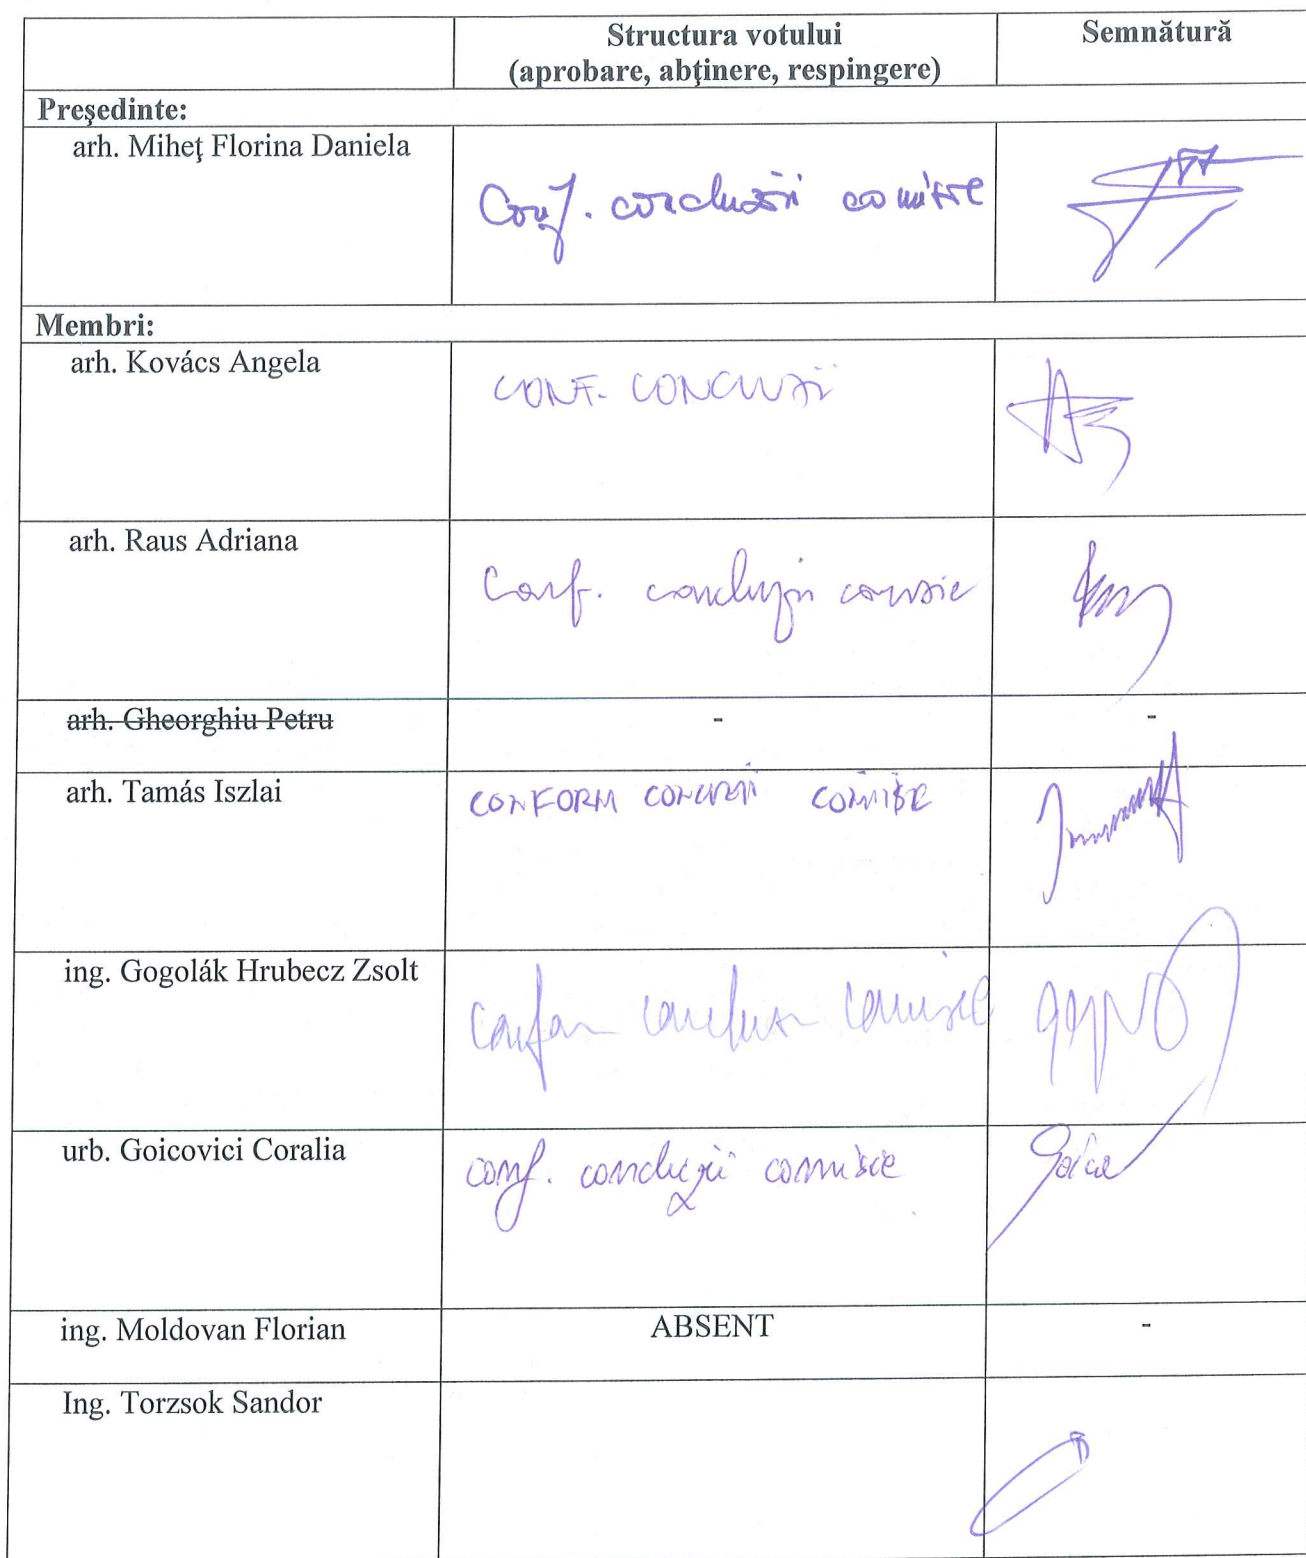 Structura votului
(aprobare, abţinere, respingere)
Semnătură
Preşedinte:
arh. Miheţ Florina Daniela
Conf. concluzii comisie
Membri:
arh. Kovács Angela
CONF. CONCLUZII
arh. Raus Adriana
Conf. concluzii comisie
arh. Gheorghiu Petru
-
-
arh. Tamás Iszlai
CONFORM CONCLUZII COMISIE
ing. Gogolák Hrubecz Zsolt
Conform comisiei
urb. Goicovici Coralia
conf. concluzii comisie
Goico
ing. Moldovan Florian
ABSENT
-
Ing. Torzsok Sandor